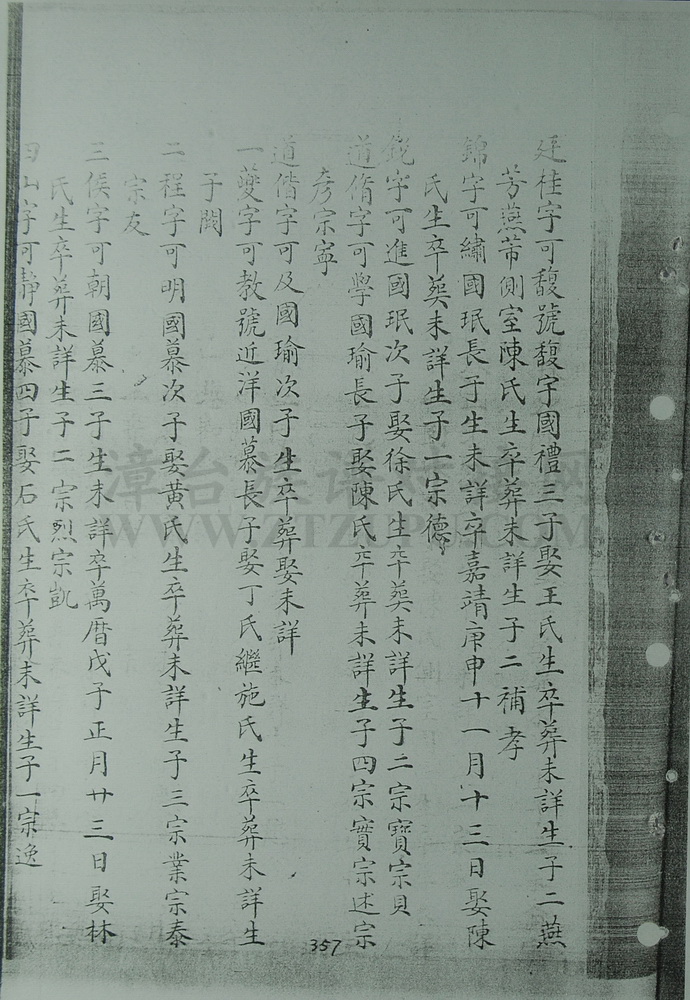 廷桂字可馥號馥宇國禮三子娶王氏生卒葬未詳生子二燕
芳燕芾側室陳氏生卒葬未詳生子二補孝
錦字可繡國珉長子生未詳卒嘉靖庚申十一月十三日娶陳
氏生卒葬未詳生子一宗德
字可進國珉次子娶徐氏生卒葬未詳生子二宗寶宗貝
道脩字可學國瑜長子娶陳氏卒葬未詳生子四宗實宗述宗
彥宗寧
道偕字可及國瑜次子生卒葬娶未詳
一夔字可教號近洋國慕長子娶丁氏繼施氏生卒葬未詳生
子閥
二程字可明國慕次子娶黃氏生卒葬未詳生子三宗業宗泰
宗友
三俟字可朝國慕三子生未詳卒萬曆戊子正月廿三日娶林
氏生卒葬未詳生子二宗烈宗凱
四山字可靜國慕四子娶石氏生卒葬未詳生子一宗逸
357
漳台族谱对接网
WWW.ZTZUPU.COM